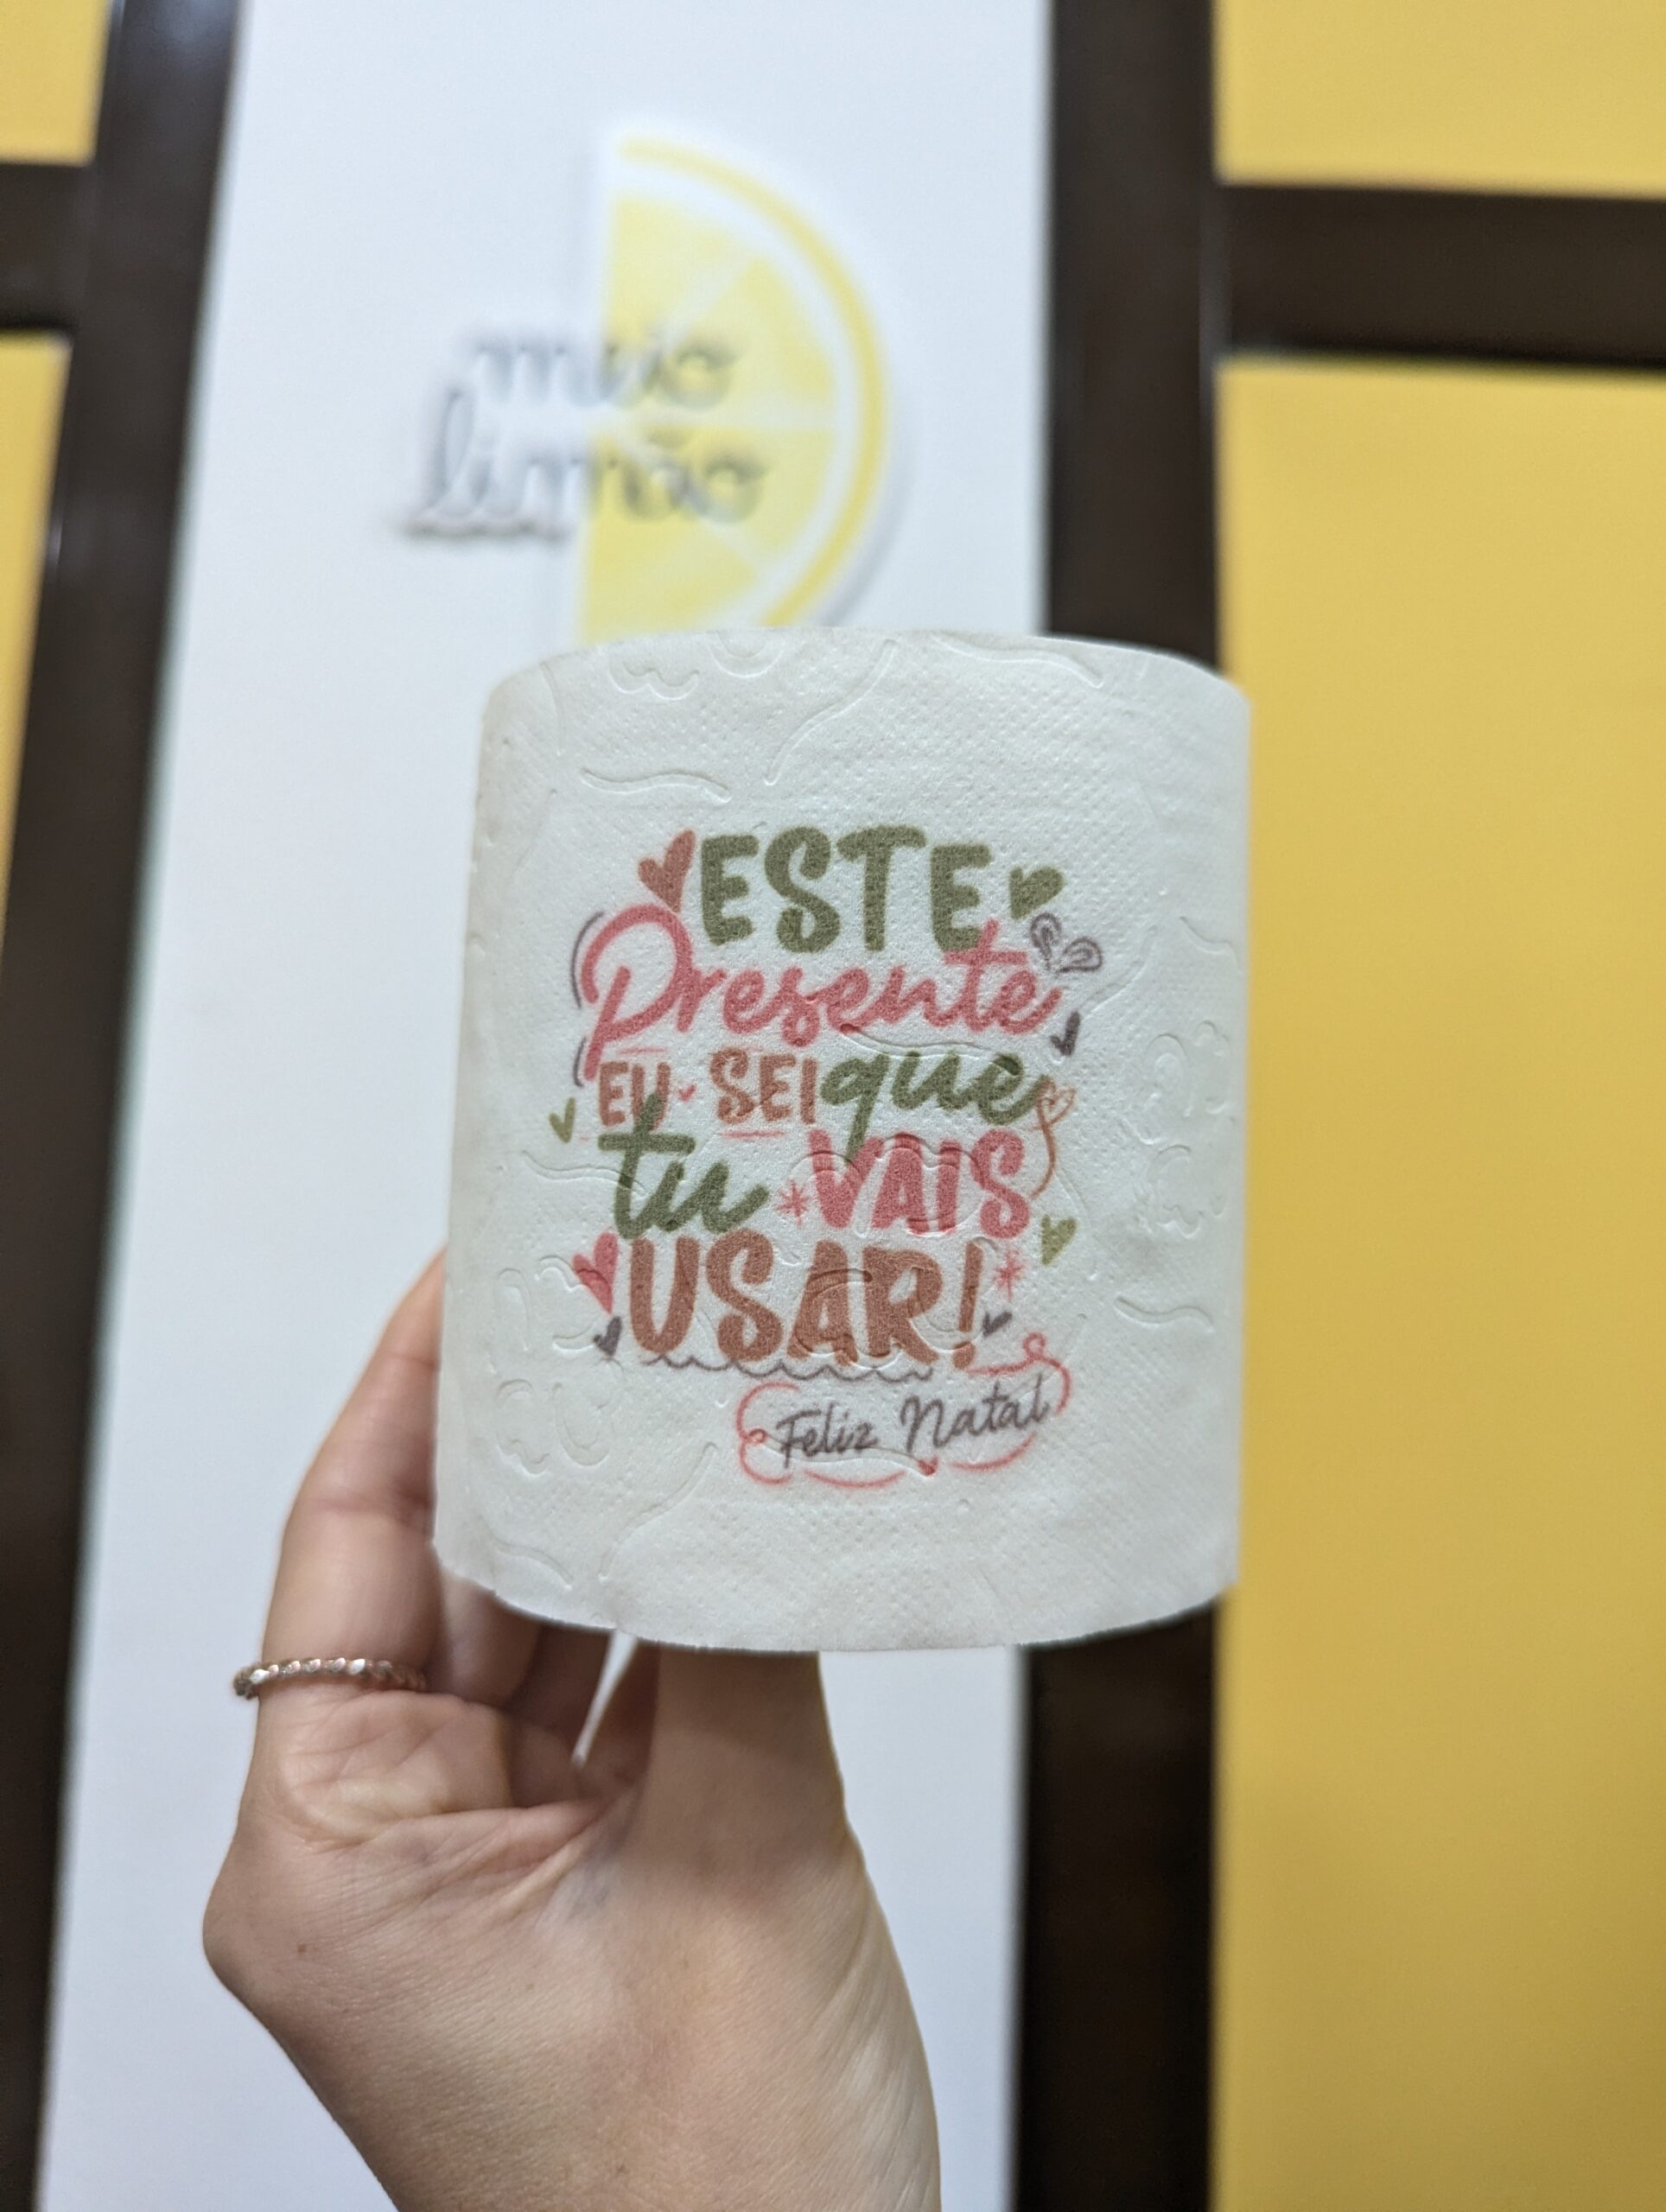 meio
limão
ESTE
Presente
EU SEI que
tu VAIS
USAR!
Feliz Natal